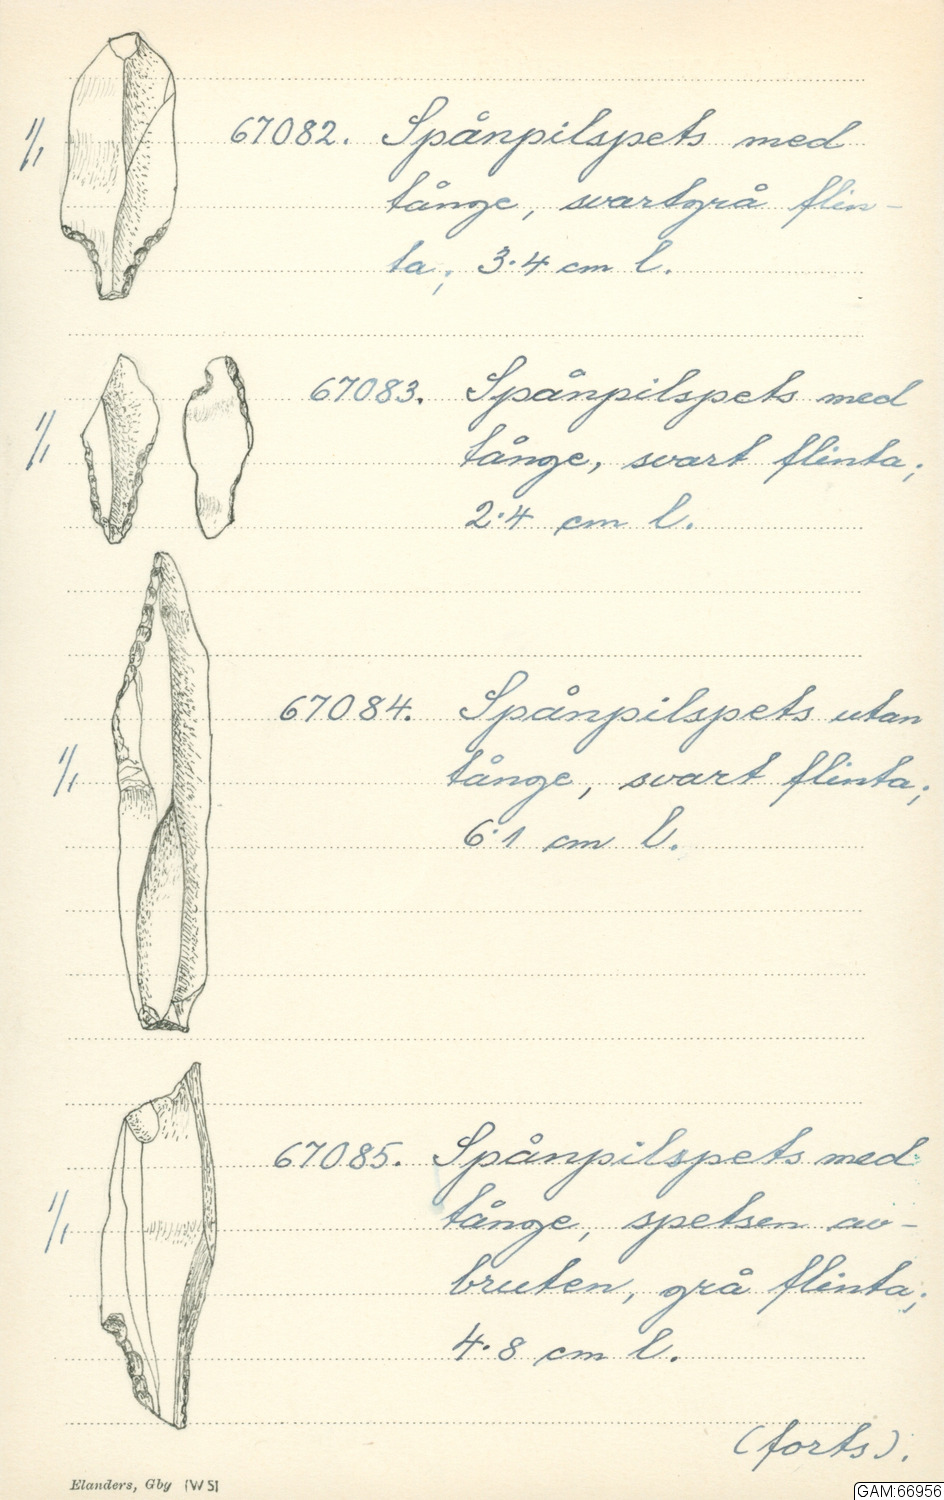 1/1
67082. Spånpilspets med
tånge, svartgrå flin-
ta; 3·4 cm l.
1/1
67083. Spånpilspets med
tånge, svart flinta;
2·4 cm l.
1/1
67084. Spånpilspets utan
tånge, svart flinta;
6·1 cm l.
1/1
67085. Spånpilspets med
tånge, spetsen av-
bruten, grå flinta;
4·8 cm l.
(forts).
Elanders, Gby (W S)
GAM:66956